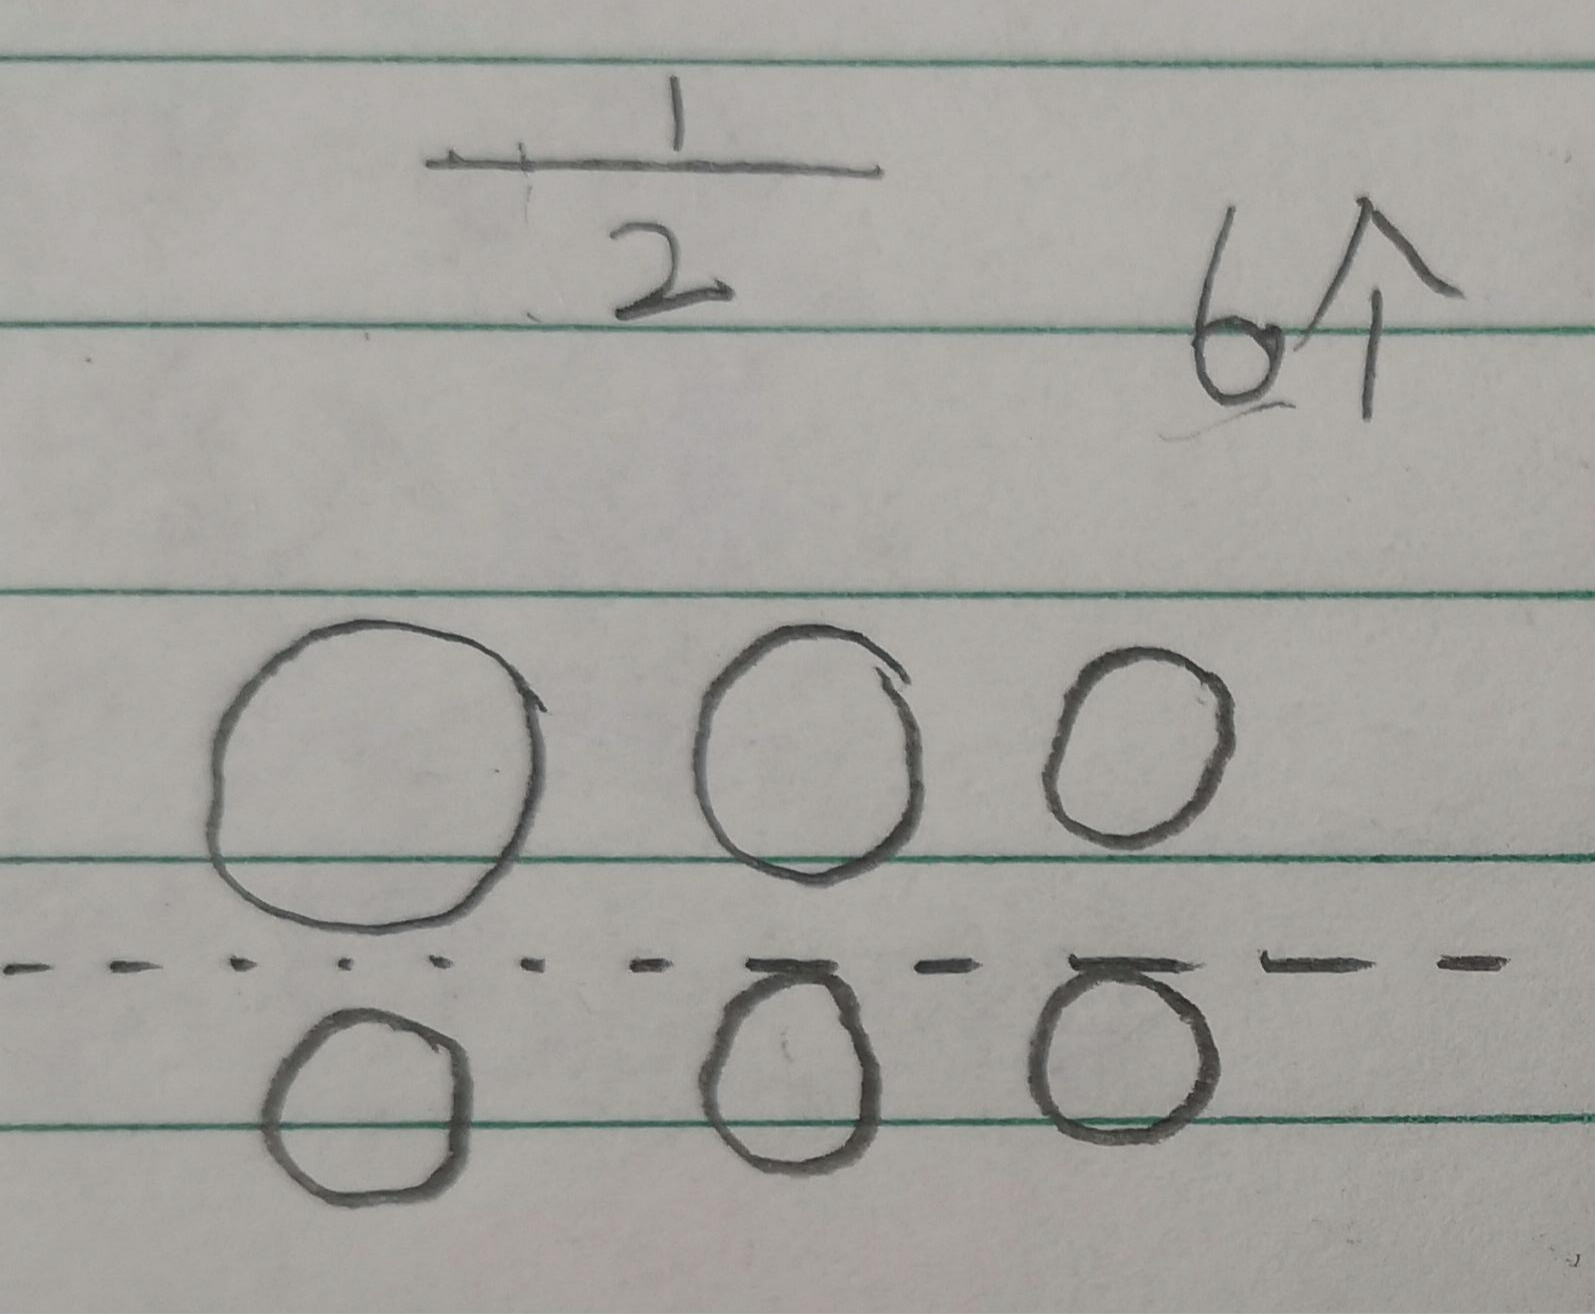 1
2
6个